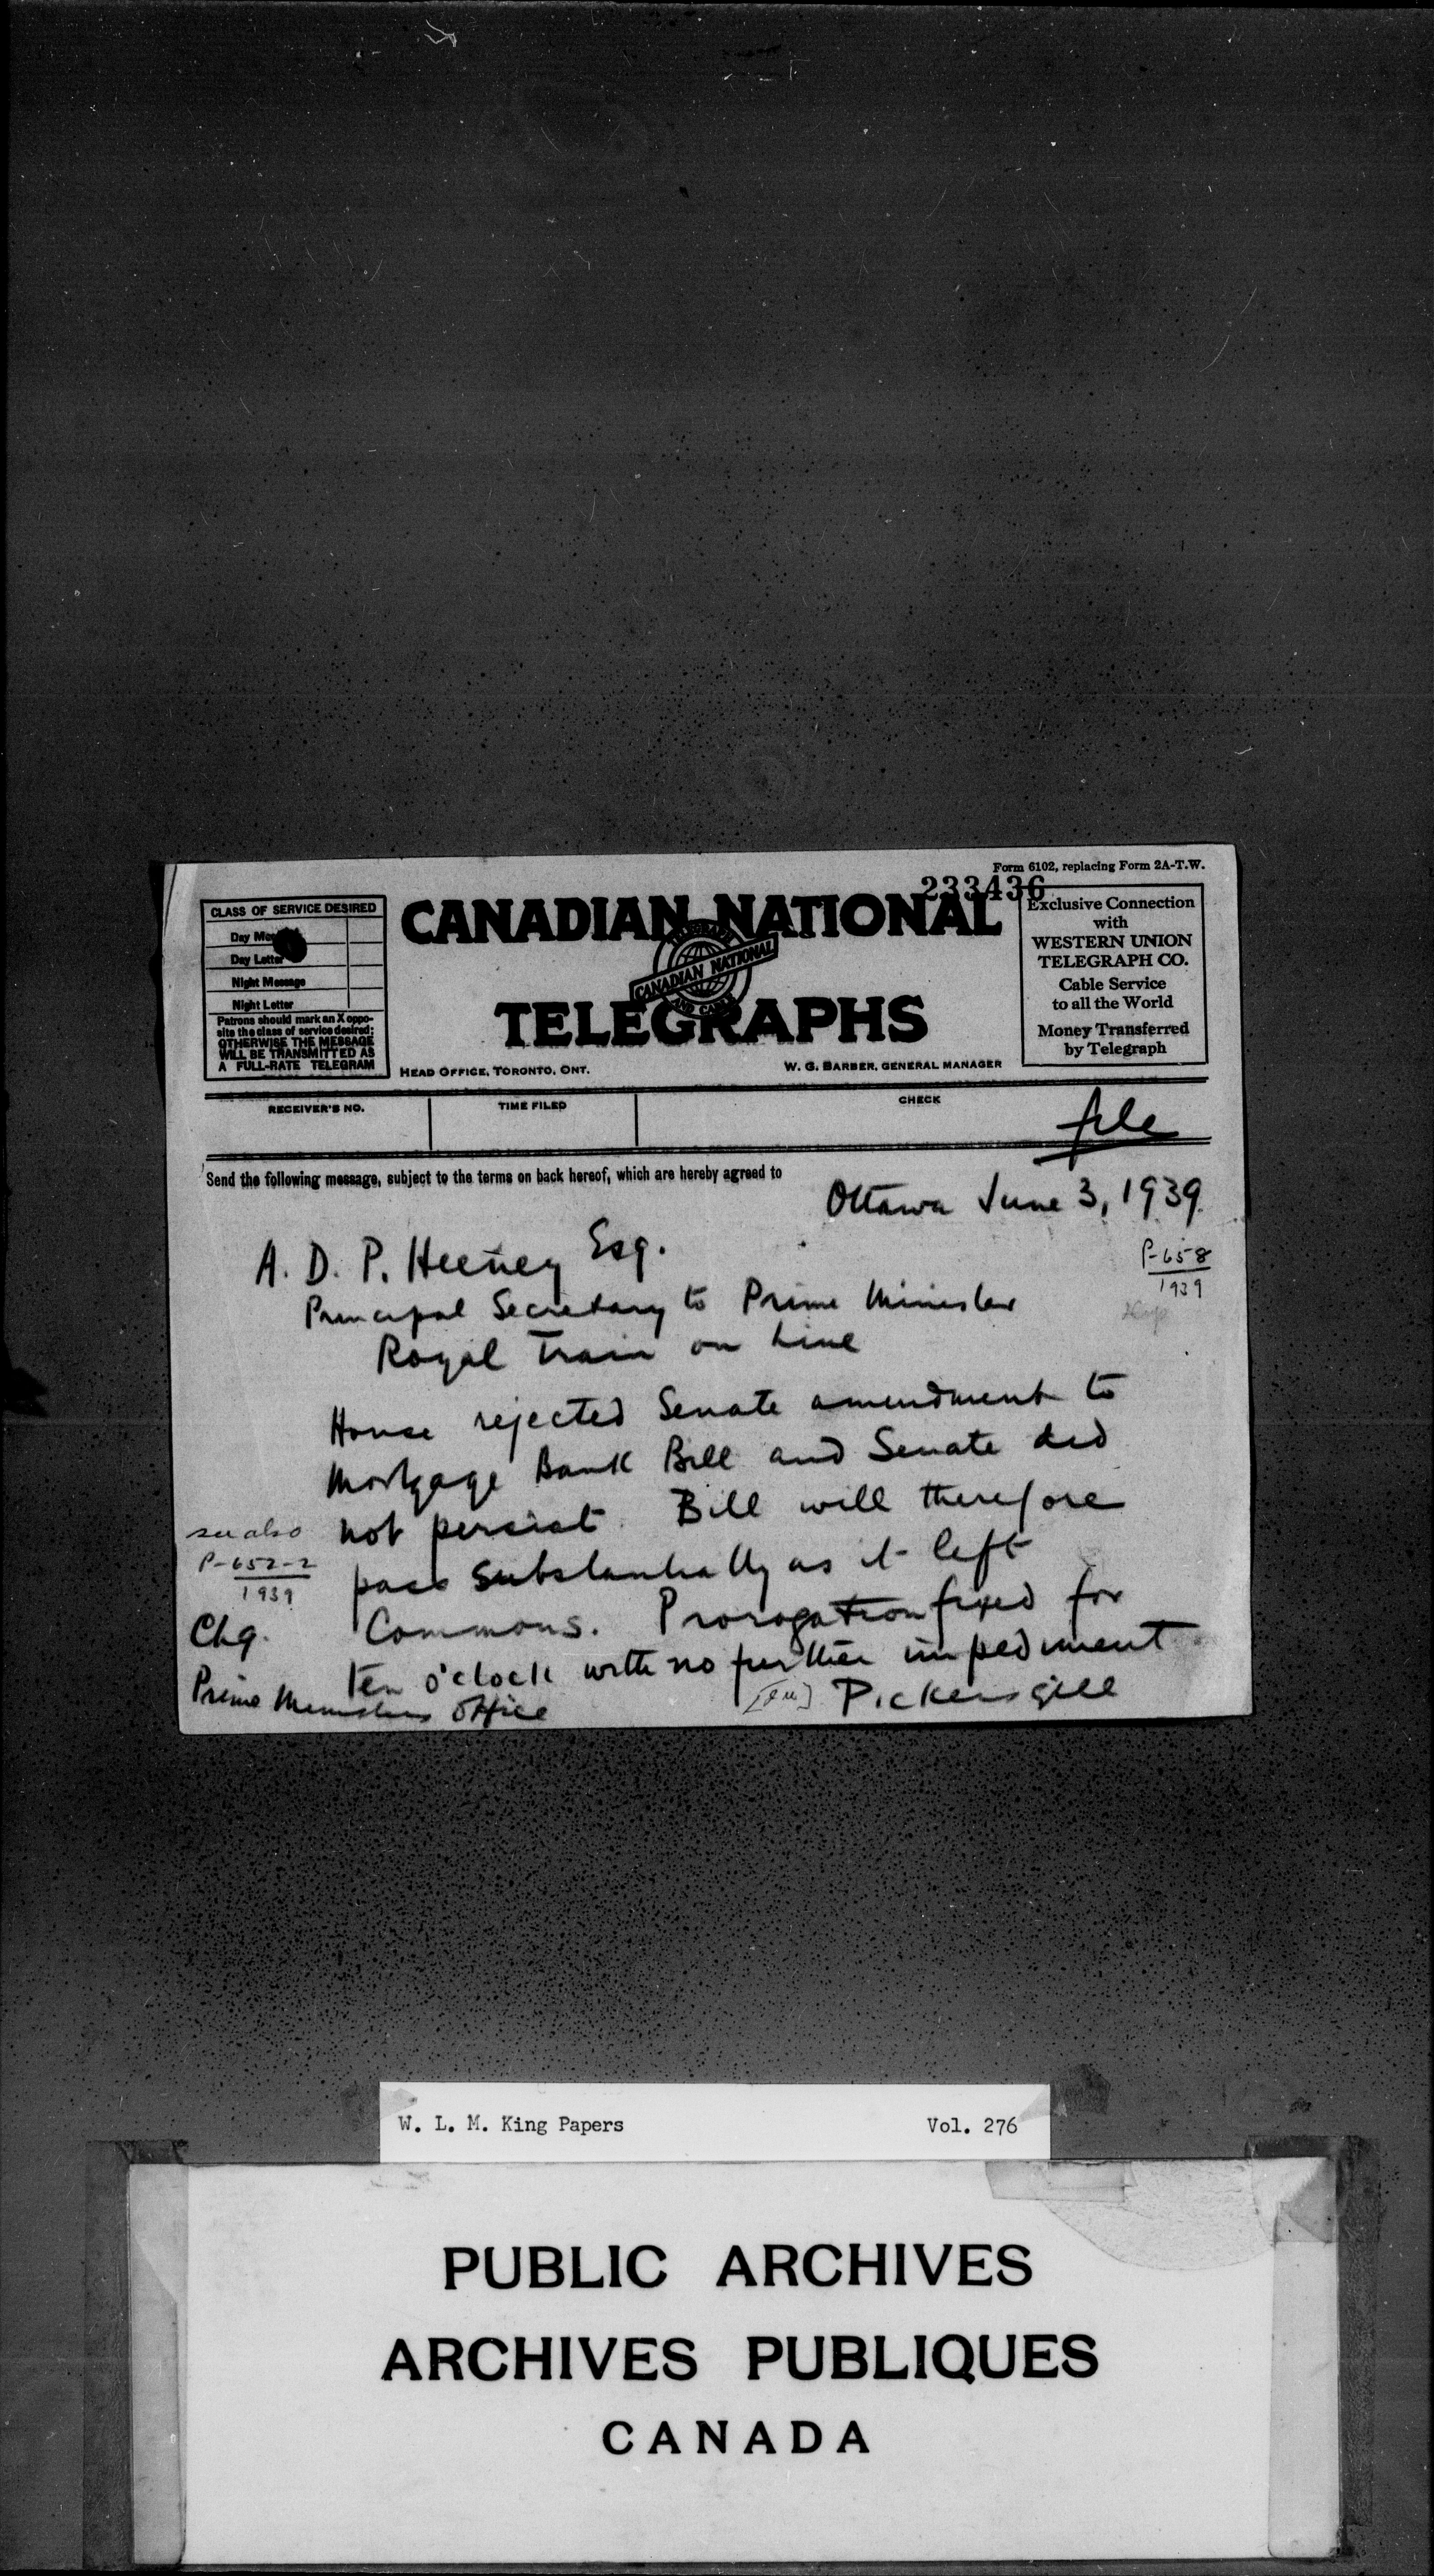 Form 6102, replacing Form 2A-T.W.
233436
CLASS OF SERVICE DESIRED
Day
Day Letter
Night Message
Night Letter
Patrons should mark an X oppo-
site the class of service desired;
OTHERWISE THE MESSAGE
WILL BE TRANSMITTED AS
A FULL-RATE TELEGRAM
CANADIAN NATIONAL
TELEGRAPH
CANADIAN NATIONAL
AND CABLE
TELEGRAPHS
HEAD OFFICE, TORONTO, ONT.
W. G. BARBER, GENERAL MANAGER
Exclusive Connection
with
WESTERN UNION
TELEGRAPH CO.
Cable Service
to all the World
Money Transferred
by Telegraph
RECEIVER'S NO.
TIME FILED
CHECK
file
Send the following message, subject to the terms on back hereof, which are hereby agreed to
Ottawa June 3, 1939.
P-658
1939
A. D. P. Heeney Esq.
Principal Secretary to Prime Minister
Royal Train on Line
House rejected Senate amendment to
Mortgage Bank Bill and Senate did
not persist. Bill will therefore
pass substantially as it left
Commons. Prorogation fixed for
ten o'clock with no further impediment
Pickersgill
see also
P-652-2
1939
Chg.
Prime Ministers Office
W. L. M. King Papers
Vol. 276
PUBLIC ARCHIVES
ARCHIVES PUBLIQUES
CANADA